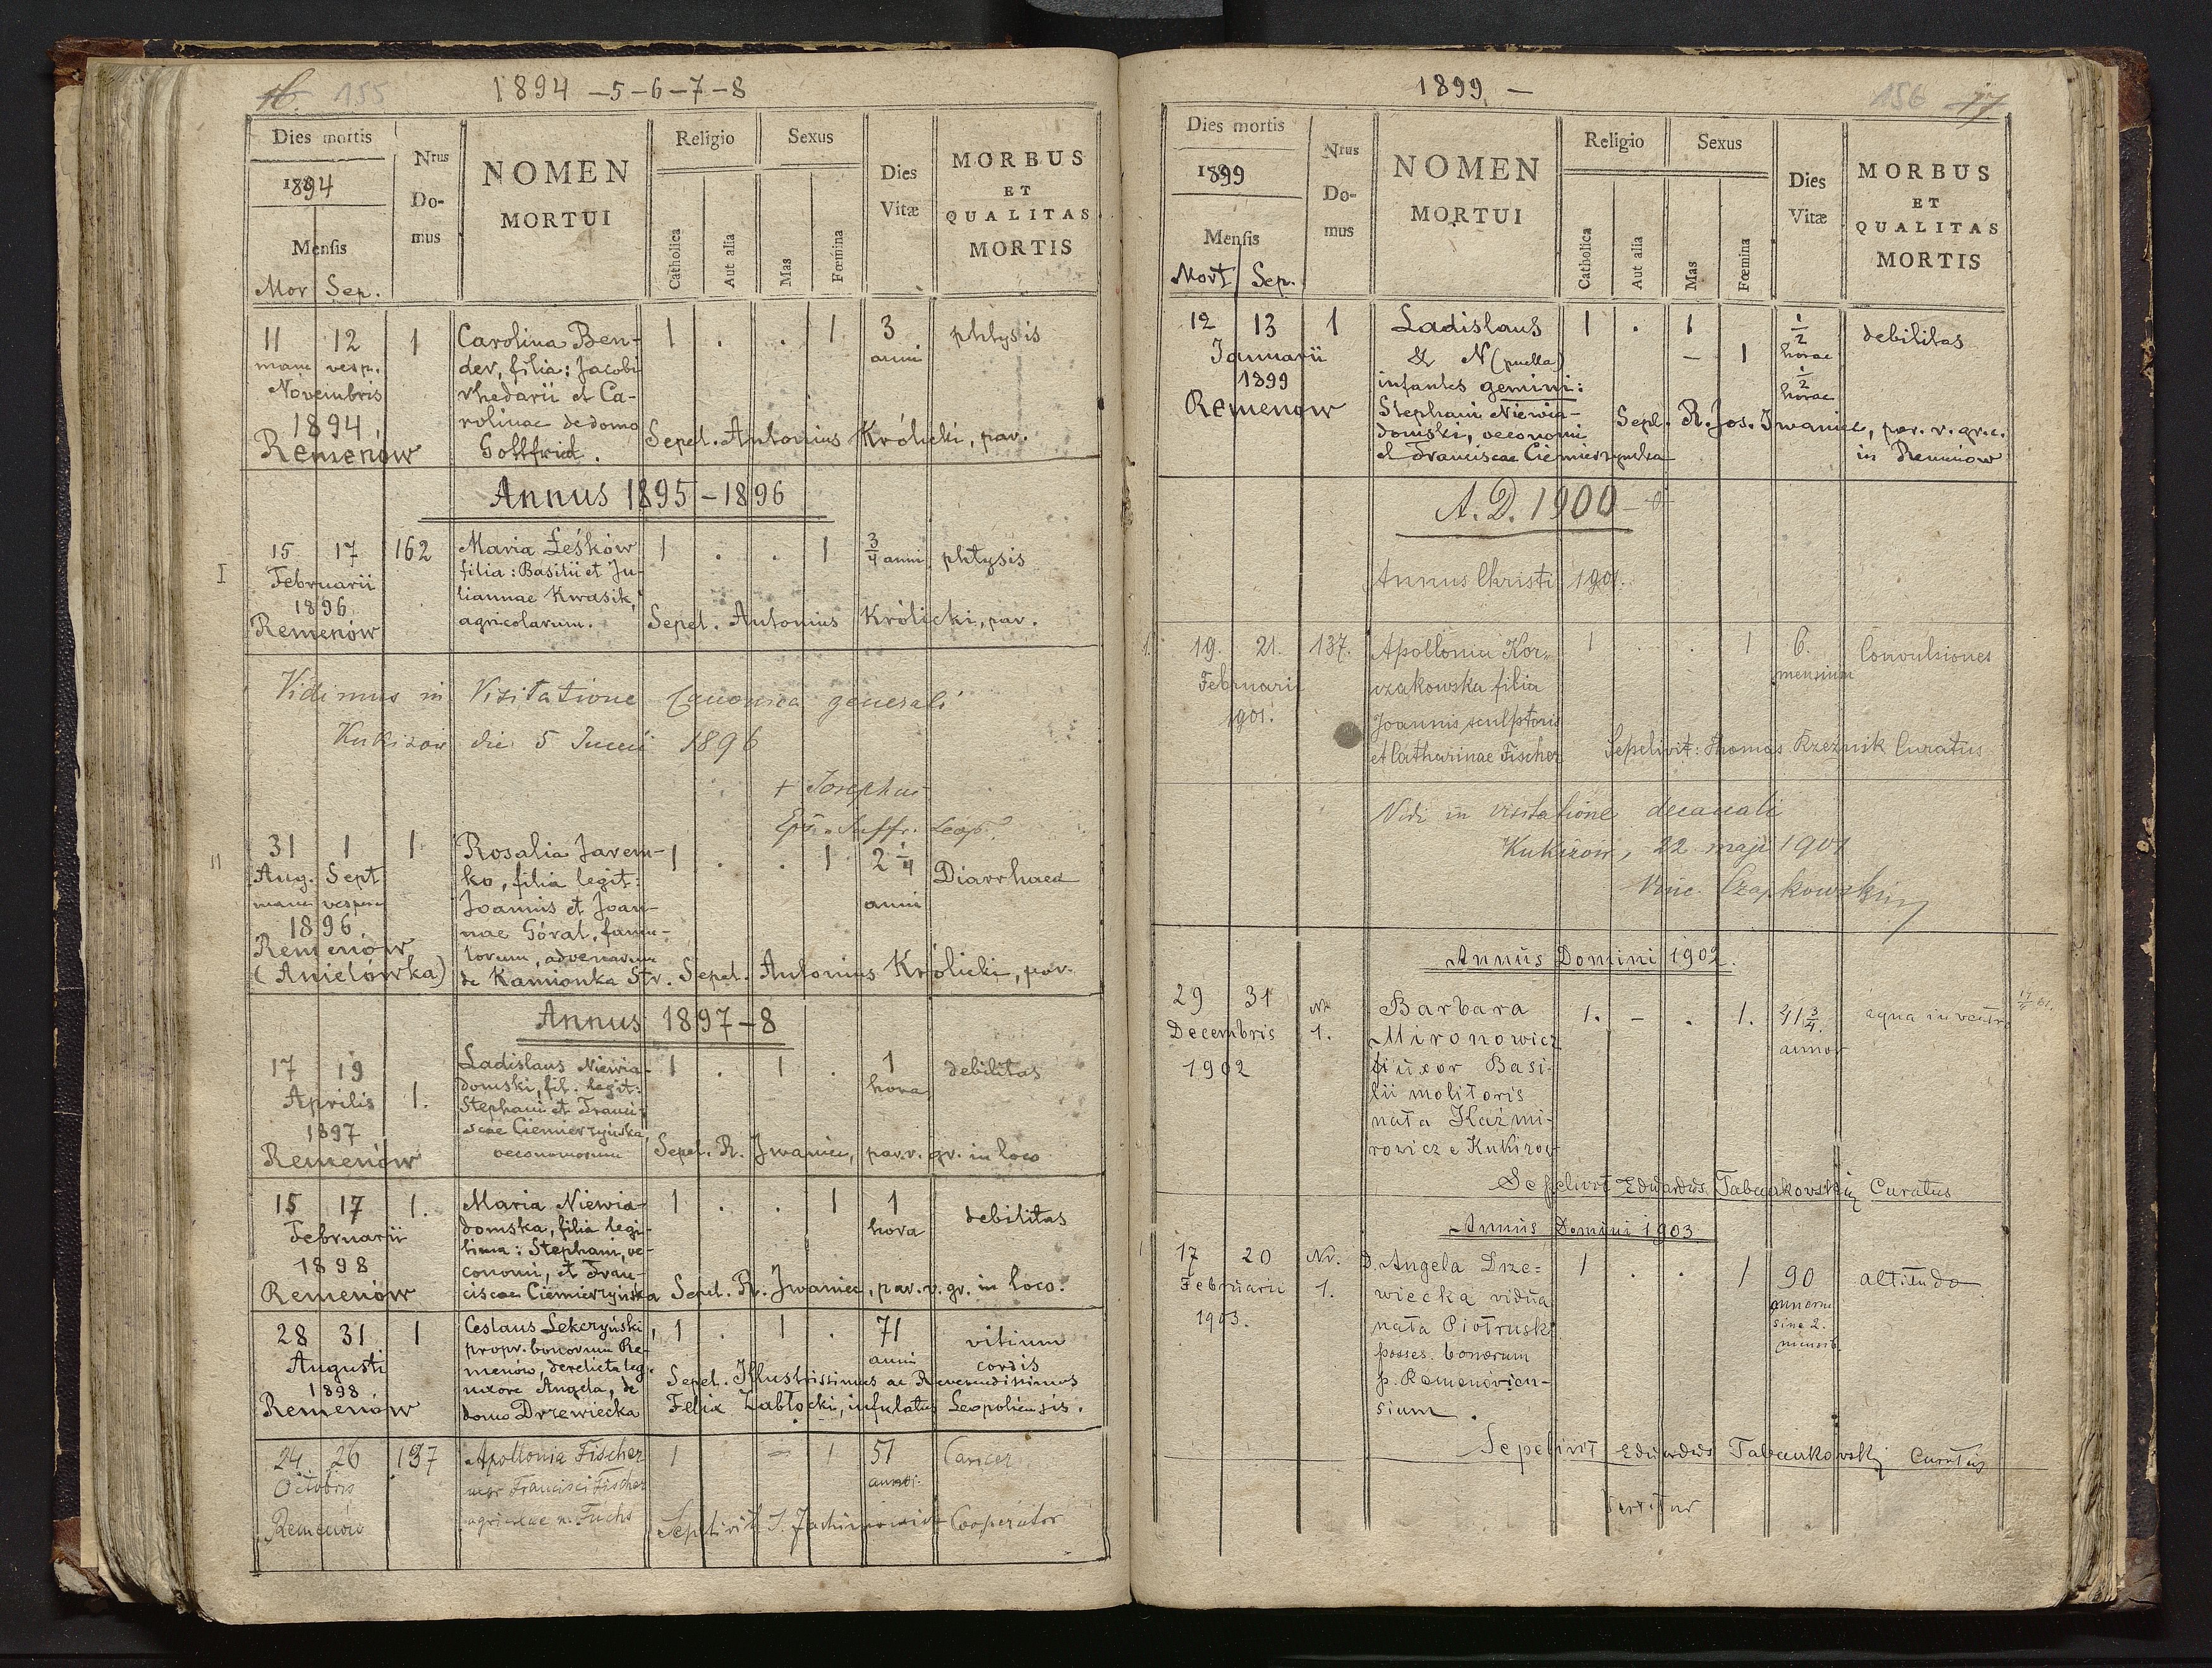 16. 155
1894 - 5 - 6 - 7 - 8
Dies mortis
1894
Mensis
Mor Sep.
Nrus Do- mus
NOMEN
MORTUI
Religio
Catholica
Aut alia
Sexus
Mas
Fœmina
Dies
Vitæ
MORBUS
ET
QUALITAS
MORTIS
11 12 1 Carolina Ben- 1 . . 1 3 phtysis
mane vesp. der, filia: Jacobi anni
Novembris rhedarii et Ca-
1894 rolinae de domo
Remenów Gottfried. Sepel. Antonius Królicki, par.
Annus 1895 - 1896
I 15 17 162 Maria Leśków 1 . . 1 3/4 anni phtysis
Februarii filia: Basilii et Ju-
1896 liannae Kwasik,
Remenów agricolarum. Sepel. Antonius Królicki, par.
Vidimus in Visitatione Canonica generali
Kukizow die 5 Junii 1896
+ Josephus
Epis. Suffr. Leop.
II 31 1 1 Rosalia Jarem- 1 . . 1 2 1/4 Diarrhaea
Aug. Sept ko, filia legit: anni
mane vespere Joannis et Joan-
1896 nae Góral, famu-
Remenów lorum, advenarum
(Anielówka) de Kamionka Str. Sepel. Antonius Królicki, par.
Annus 1897-8
17 19 1. Ladislaus Niewia- 1 . 1 . 1 debilitas
Aprilis domski, fil. legit: hora
1897 Stephani et Franci-
Remenów scae Ciemierzyńska,
oeconomorum Sepel. R. Jwaniec, par. r. gr. in loco
15 17 1. Maria Niewia- 1 . . 1 1 debilitas
Februarii domska, filia legi- hora
1898 tima: Stephani, oe-
conomi, et Fran-
Remenów ciscae Ciemierzyńska Sepel. R. Jwaniec, par. r. gr. in loco.
28 31 1 Ceslaus Lekczyński, 1 . 1 . 71 vitium
Augusti propr. bonorum Re- anni cordis
1898 menów, derelicta leg. Sepel. Illustrissimus ac Reverendissimus
uxore Angela, de
Remenów domo Drzewiecka Felix Zabłocki, infulatus Leopoliensis.
24 26 137 Apollonia Fischer 1 - 1 51 Cancer
Octobris uxor Francisci Fischer
Remenów agricolae n. Fuchs Sepelivit Cooperator
156 17
1899 -
Dies mortis
1899
Mensis
Mort Sep.
Nrus Do- mus
NOMEN
MORTUI
Religio
Catholica
Aut alia
Sexus
Mas
Fœmina
Dies
Vitæ
MORBUS
ET
QUALITAS
MORTIS
12 13 1 Ladislaus 1 . 1 1/2 horae debilitas
Januarii & N (puella) - 1 1/2 horae
1899 infantes gemini:
Remenow Stephani Niewia- Sepl. R. Jos. Iwaniec, par. r. gr. c.
domski, oeconomi in Remenow
et Franciscae Ciemierzynska
A. D. 1900
Annus Christi 1901.
1. 19. 21. 137. Apollonia Kor- 1 . . 1 6. Convulsiones
Februarii czakowska filia mensium
1901. Joannis sculptoris
et Catharinae Fischer Sepelivit: Thomas Rzeźnik Curatus
Vidi in visitatione decanali
Kukizow, 22 maji 1901
Vinc. Czapkowski
Annus Domini 1902.
29 31 Nr Barbara 1. - . 1. 41 3/4 aqua in ventre
Decembris 1. Mironowicz annor
1902 uxor Basi-
lii molitoris
nata Kaźmi-
rowicz e Kukizow
Sepelivit Eduardus Tabaczkowski Curatus
Annus Domini 1903
17 20 Nr. D. Angela Drze= 1 . . 1 90 altitudo
Februarii 1. wiecka vidua annorum
1903. nata Piotruski sine 2.
posses. bonorum mensib.
p. Remenovien-
sium.
Sepelivit Eduardus Tabaczkowski Curatus
Vertitur